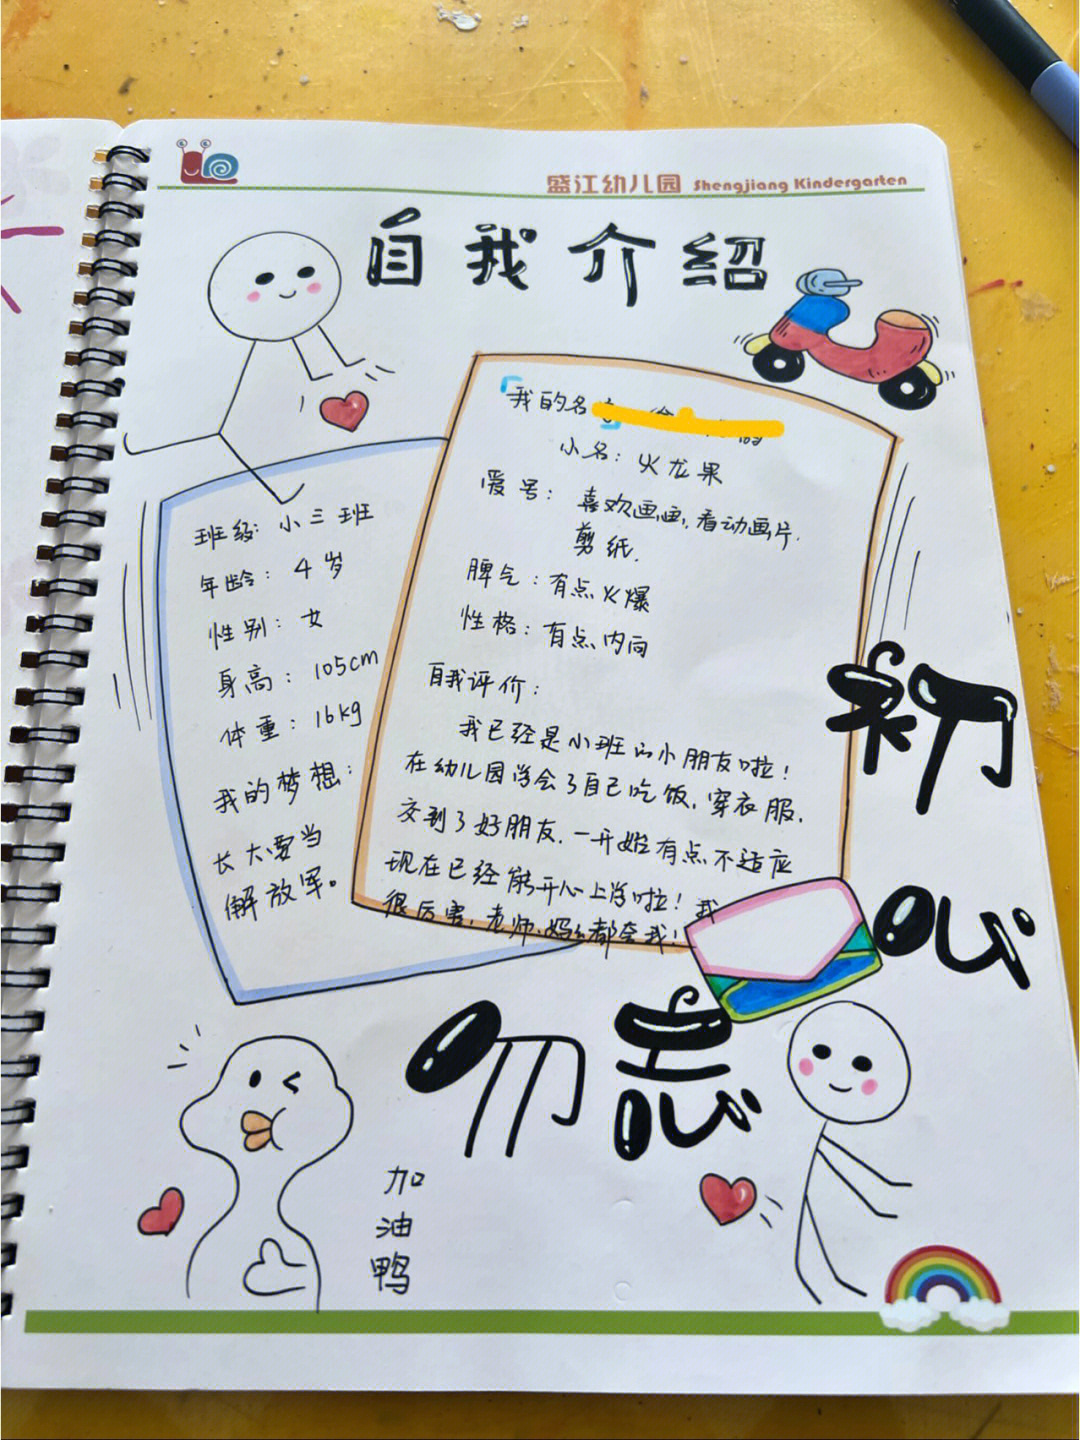 盛江幼儿园 Shengjiang Kindergarten
自我介绍
我的名
小名：火龙果
爱号：喜欢画画，看动画片.
剪纸.
脾气：有点火爆
性格：有点内向
自我评价：
我已经是小班的小朋友啦！
在幼儿园学会了自己吃饭，穿衣服，
交到了好朋友，一开始有点不适应
现在已经能开心上学啦！我
很厉害，老师、妈妈都夸我！
班级：小三班
年龄：4岁
性别：女
身高：105cm
体重：16kg
我的梦想：
长大要当
解放军。
初
心
勿忘
加
油
鸭